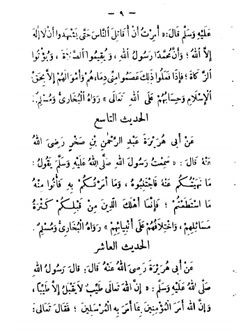 - ٩ -
عَلَيْهِ وَسَلَّمَ قَالَ: أُمِرْتُ أَنْ أُقَاتِلَ النَّاسَ حَتَّى يَشْهَدُوا أَنْ لَا إِلٰهَ
إِلَّا اللهُ ، وَأَنَّ مُحَمَّدًا رَسُولُ اللهِ ، وَيُقِيمُوا الصَّلَاةَ ، وَيُؤْتُوا
الزَّكَاةَ ؛ فَإِذَا فَعَلُوا ذٰلِكَ عَصَمُوا مِنِّي دِمَاءَهُمْ وَأَمْوَالَهُمْ إِلَّا بِحَقِّ
الْإِسْلَامِ وَحِسَابُهُمْ عَلَى اللهِ تَعَالَى ، رَوَاهُ الْبُخَارِيُّ وَمُسْلِمٌ .
الحديث التاسع
عَنْ أَبِي هُرَيْرَةَ عَبْدِ الرَّحْمٰنِ بْنِ صَخْرٍ رَضِيَ اللهُ
عَنْهُ قَالَ : سَمِعْتُ رَسُولَ اللهِ صَلَّى اللهُ عَلَيْهِ وَسَلَّمَ يَقُولُ :
مَا نَهَيْتُكُمْ عَنْهُ فَاجْتَنِبُوهُ ، وَمَا أَمَرْتُكُمْ بِهِ فَأْتُوا مِنْهُ
مَا اسْتَطَعْتُمْ ؛ فَإِنَّمَا أَهْلَكَ الَّذِينَ مِنْ قَبْلِكُمْ كَثْرَةُ
مَسَائِلِهِمْ ، وَاخْتِلَافُهُمْ عَلَى أَنْبِيَائِهِمْ ، رَوَاهُ الْبُخَارِيُّ وَمُسْلِمٌ .
الحديث العاشر
عَنْ أَبِي هُرَيْرَةَ رَضِيَ اللهُ عَنْهُ قَالَ : قَالَ رَسُولُ اللهِ
صَلَّى اللهُ عَلَيْهِ وَسَلَّمَ : إِنَّ اللهَ تَعَالَى طَيِّبٌ لَا يَقْبَلُ إِلَّا طَيِّبًا ،
وَإِنَّ اللهَ أَمَرَ الْمُؤْمِنِينَ بِمَا أَمَرَ بِهِ الْمُرْسَلِينَ ؛ فَقَالَ تَعَالَى :